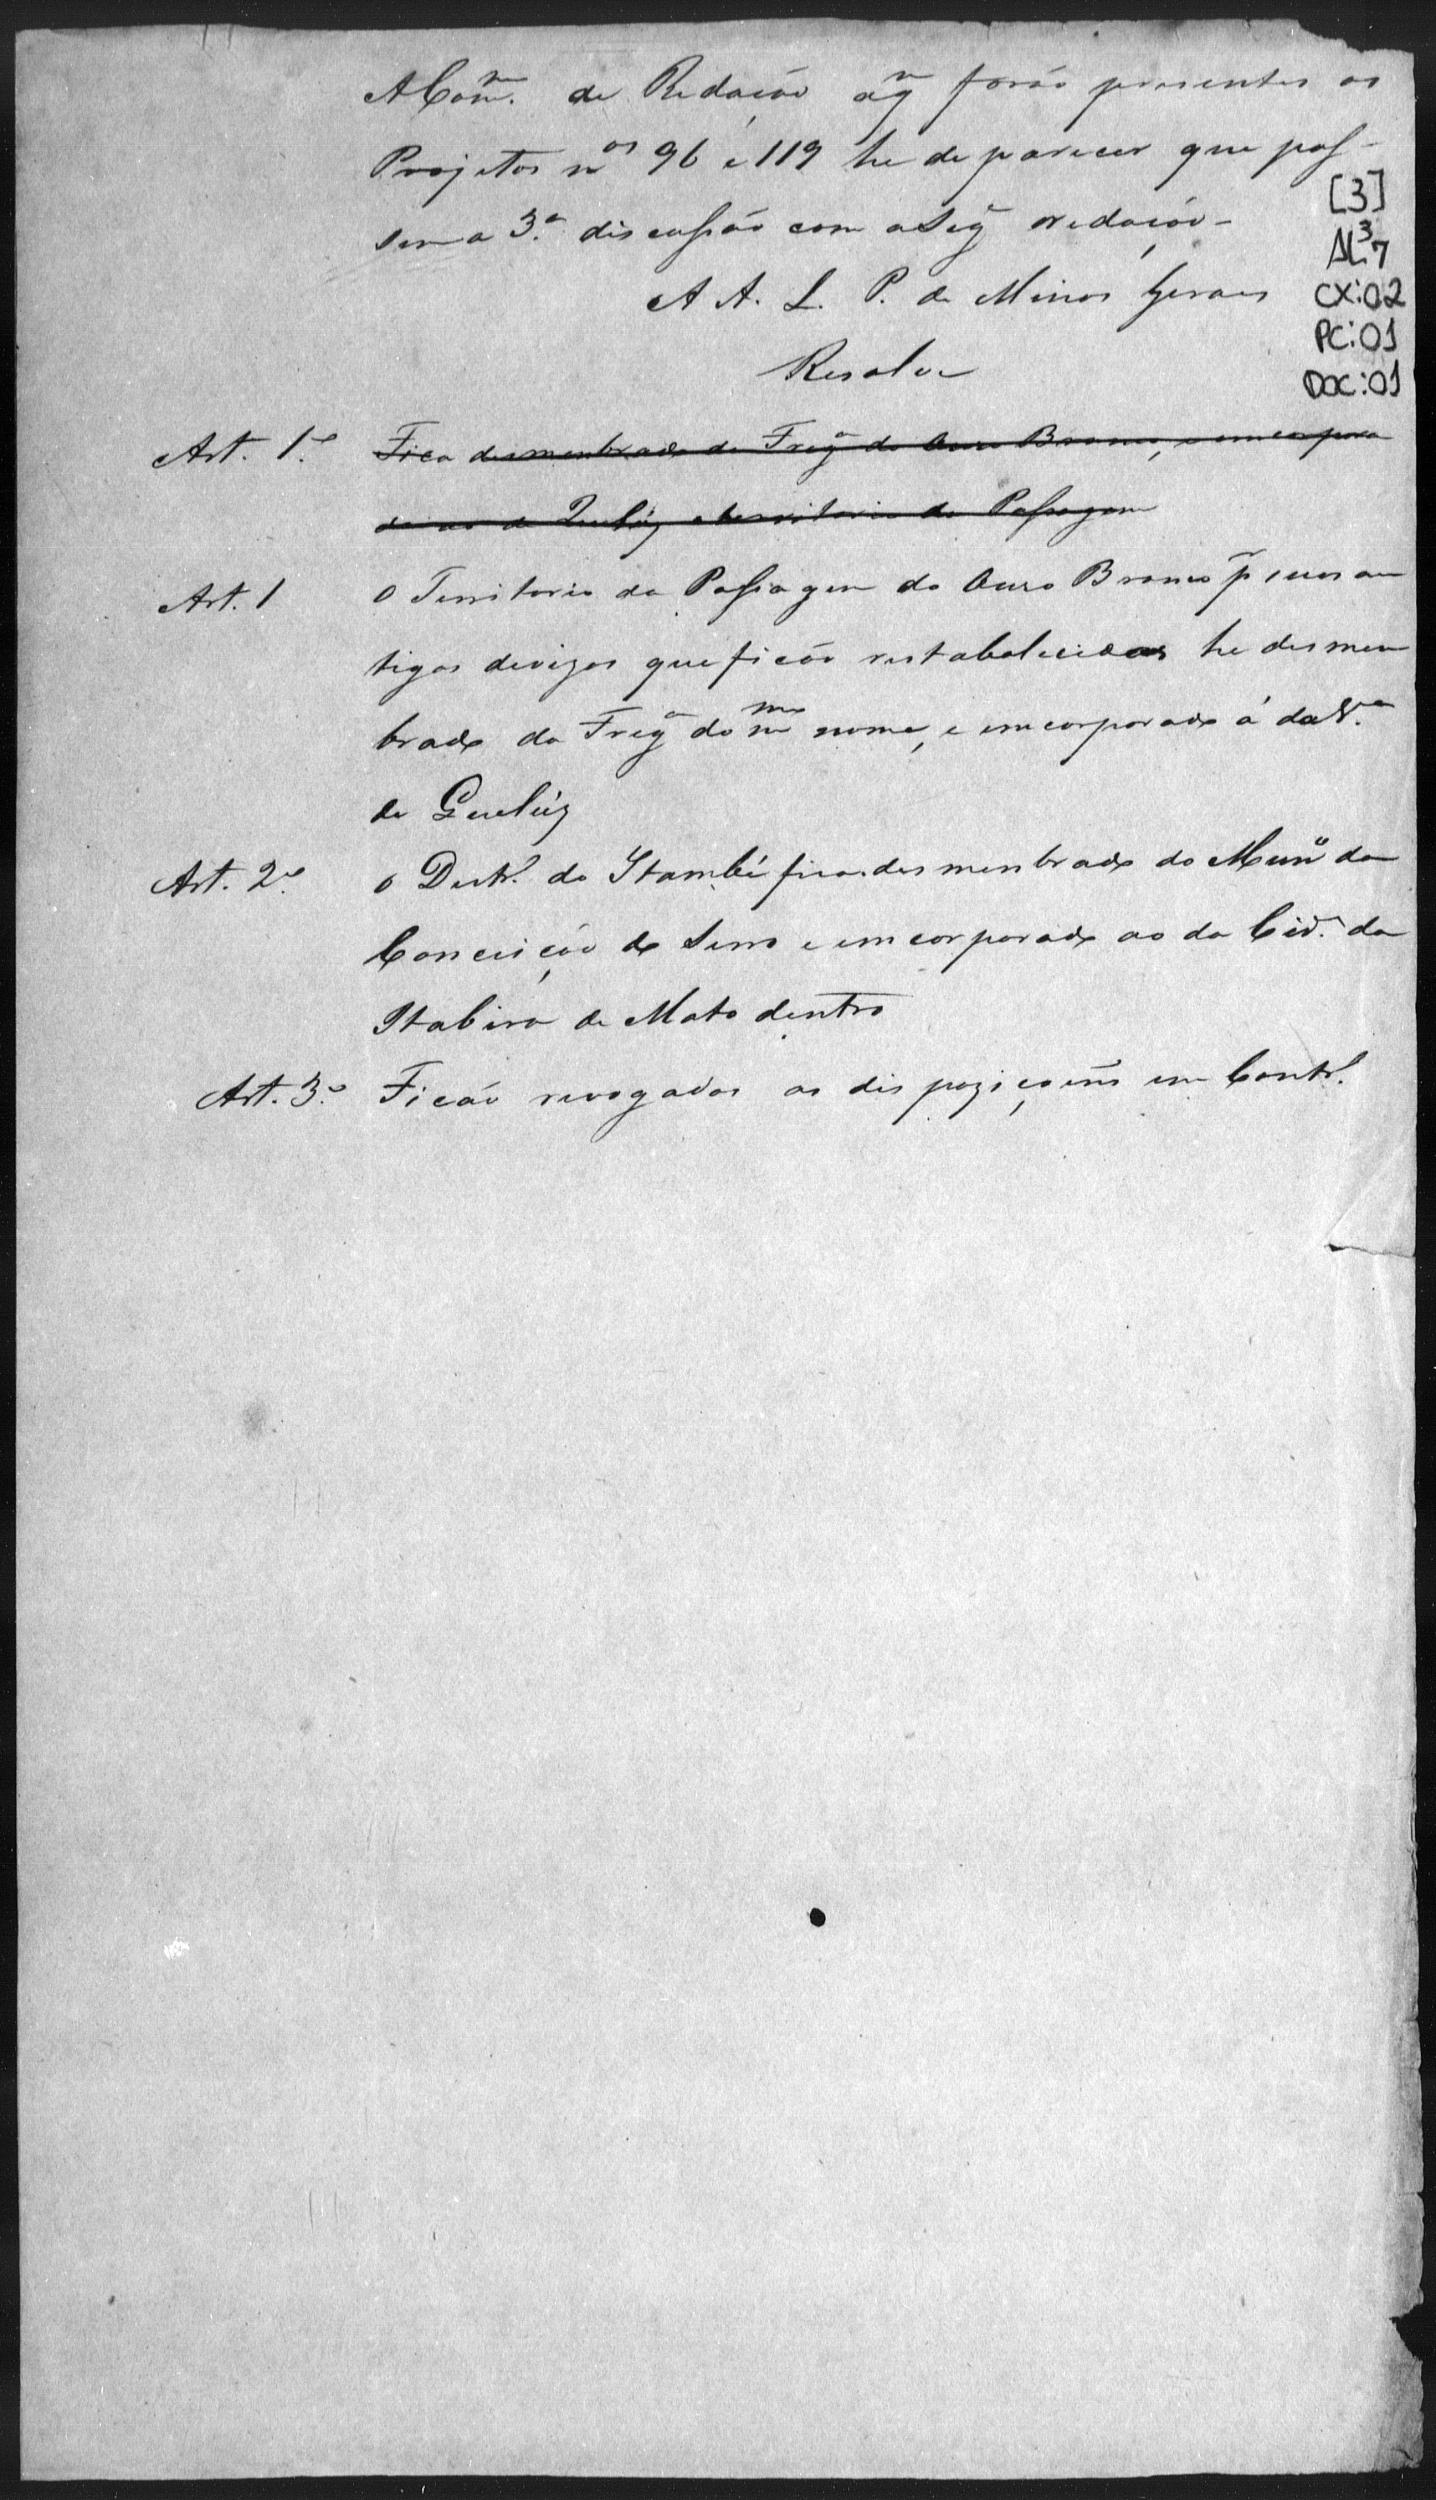 A Com.^m de Redação a q^m forão presentes os
Projetos n^os 96 e 119 he de parecer que pas-
sem a 3.ª discussão com a seg^e redação -
[3]
AL 3 7
CX:02
PC:01
DOC:01
A A. L. P. de Minas Geraes
Resolve
Art. 1.º Fica desmenbrado da Freg^a do Ouro Branco, e emcorpora
do ao de Queluz o territorio da Passagem
Art. 1 O Territorio da Passagem do Ouro Branco p^r suas an
tigas devizas que ficão restabelecidas he desmen
brado da Freg^a do m^mo nome, e emcorporado á da V.ª
de Queluz
Art. 2.º O Destr.º do Itambé fica desmenbrado do Mun^o da
Conceição do Serro e emcorporado ao da Cid.^e da
Itabira de Mato dentro
Art. 3.º Ficão revogadas as dispoziçoens em Contr.º